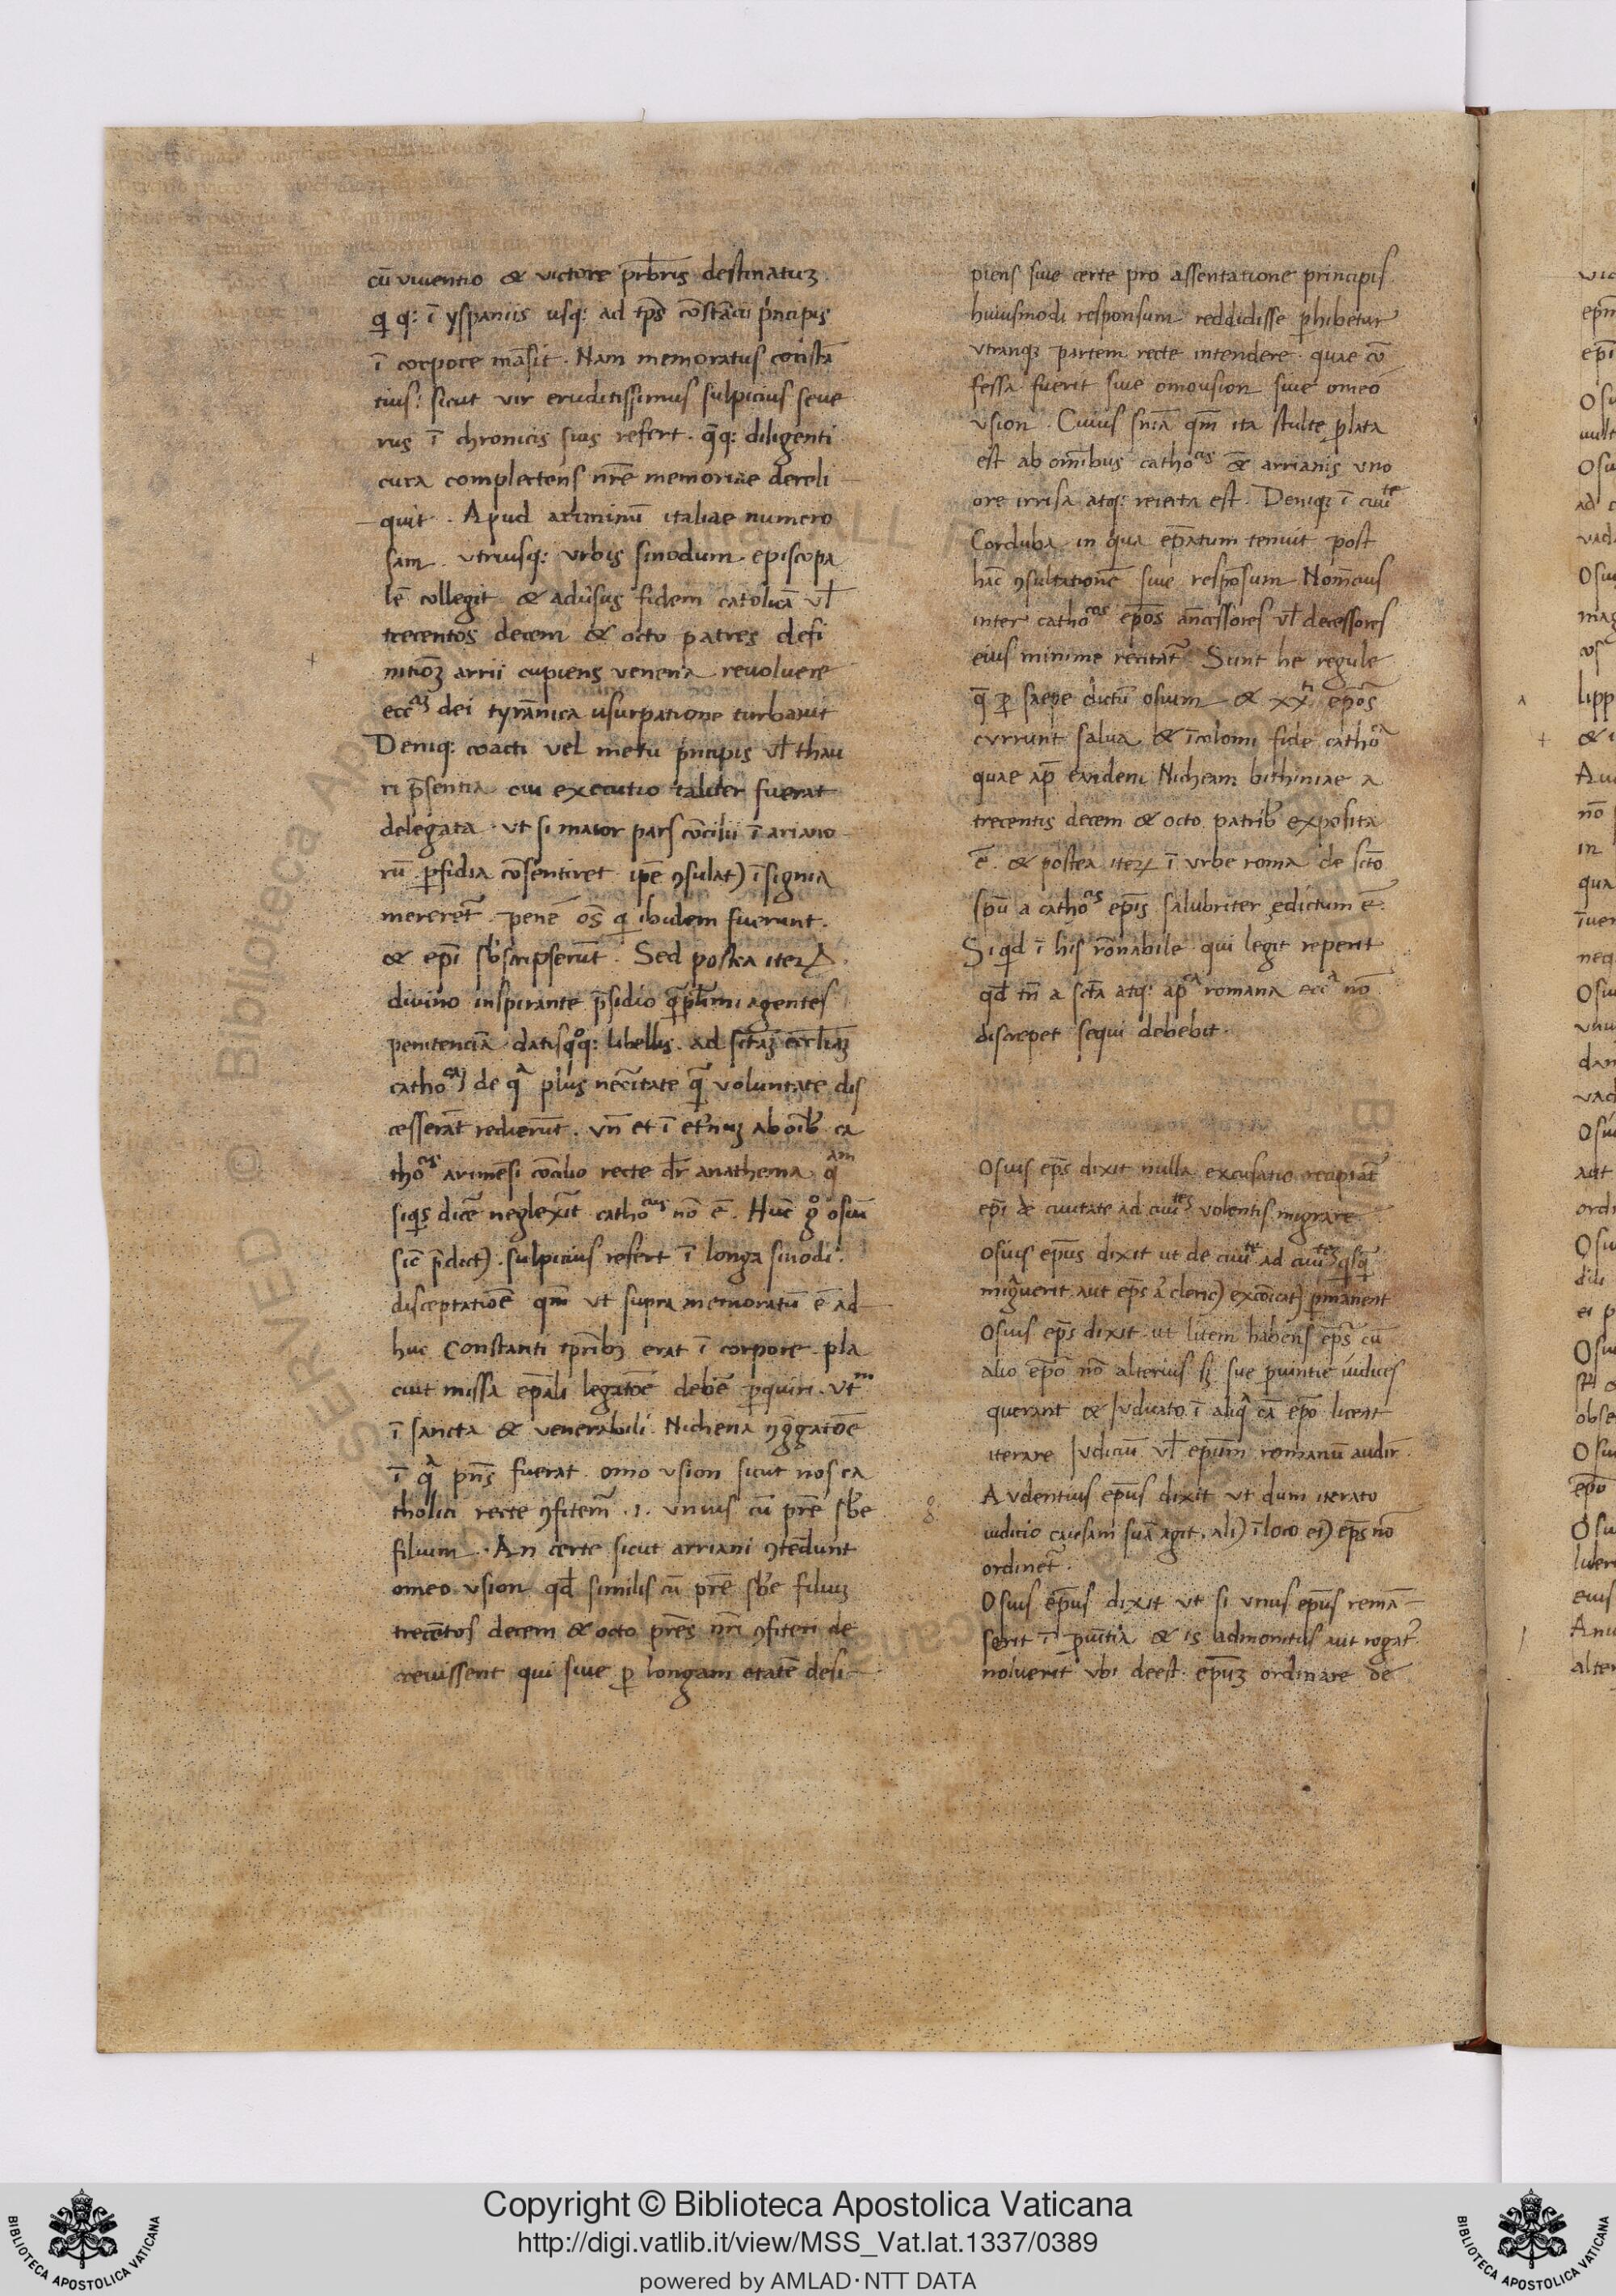 cū viventio & victore p̄rb̄ris destinatuʒ
qi q: ī yspaniis usq: ad tp̄s cōstācii pⁱncipis
ī corpore māsit. Nam memoratus constā
tius: sicut vir eruditissimus sulpicius seve
rus ī chronicis suis refert. q̄q: diligenti
cura complectens nr̄e memoriae dereli
quit. Apud ariminū italiae numero
sam. utriusq: urbis sinodum. episcopa
lē collegit & adv̄sus fidem catolicā vl̄
trecentos decem & octo patres defi
nitiōʒ arrii cupiens venena revolvere
ecc̄ᵃˢ dei tyrānica usurpatione turbavit
Deniq: coacti vel metu pⁱncipis vl̄ thau
ri p̄sentia cui executio taliter fuerat
delegata. ut si maior pars cōcilii ī ariano
rū ꝑfidia cōsentiret ip̄e ꝯsulat) īsignia
mereret̄ pene os̄ qi ibidem fuerunt.
& ep̄i sb̄scripserūt. Sed postea iteꝝ
divino inspirante p̄sidio agentes
penitenciā datisq̊q: libellis. ad sc̄taʒ eccl̄iaʒ
cathoᶜᵃʒ de qᵃ plus nec̄itate qᵃ̄ voluntate dis
cesserāt redierūt. un̄ et ī et̄nuʒ ab oīb; ca
thoᶜⁱˢ arimēsi cōcilio recte dr̄ anathema qᵃᵐ
siqⁱs dicē neglexīt cathoᶜᵘˢ nō ē. Hūc gᵒ osiū
sic̄ p̄dict) sulpicius refert ī longa sinodi
disceptatiōē qm̄ ut supra memoratū ē ad
huc Constanti tp̄rib; erat ī corpore. pla
cuit missa ep̄ali legatōē debē ꝑquiri. utᵐ
ī sancta & venerabili Nichena ꝯgᵉgatōē
ī qᵃ pn̄s fuerat. omo usion sicut nos ca
tholici recte ꝯfitem̄ .i. unius cū pr̄e sb̄e
filium. An certe sicut arriani ꝯtēdunt
omeo usion qd̄ similis cū pr̄e sb̄e filiuʒ
trecētos decem & octo pr̄es nr̄i ꝯfiteri de
crevissent qui sive ꝑ longam etatē desi
piens sive certe pro assentatione principis
huiusmodi responsum reddidisse ꝑhibetur
utranqʒ partem recte intendere. quae cō
fessa fuerit sive omousion sive omeo
usion. Cuius sn̄ia qm̄ ita stulte ꝓlata
est ab omībus cathoᶜⁱˢ & arrianis uno
ore irrisa atq: reiecta est. Deniqʒ ī civiᵗᵉ
Corduba in qua ep̄atum tenuit post
hāc ꝯsultationē sive respōsum Nom̄ eius
inter cathoᶜᵒˢ ep̄os ān̄cessores vl̄ decessores
eius minime recitat̄ Sunt he regule
q̄ ꝑ saepe dictū osium & xxᵗⁱ ep̄os
currunt salva & īcolomi fide cathoᶜᵃ
quae ap̄ eandem Nicheam bithiniae a
trecentis decem & octo patrib; exposita
ē. & postea iteꝝ ī urbe roma de sc̄to
sp̄u a cathoᶜⁱˢ ep̄is salubriter edictum ē
Siqd̄ ī his rōnabile qui legit reperit
qd̄ tn̄ a sc̄ta atq: apᶜᵃ romana eccᵃ nō
discrepet sequi debebit.
Osius ep̄s dixit nulla excusatio recipiat̄
ep̄i de civitate ad civiᵗᵉˢ volentis migrare
Osius ep̄us dixit ut de civiᵗᵉ ad civiᵗᵉˢ qⁱsqⁱ
migᵃverit aut ep̄s a cleric) excōicat) ꝑmanent
Osius ep̄s dixit ut litem habens ep̄s cū
alio ep̄o nō alterius sʒ sue ꝓvintie iudices
querant & Iudicato ī aliqᵃ cā ep̄o liceat
iterare Iudiciū vl̄ ep̄um romanū audir̄
Audentius ep̄us dixit ut dum iterato
iuditio causam suā agit. ali) ī loco ei) ep̄s nō
ordinet̄.
Osius ep̄us dixit ut si unus ep̄us remā
serit ī ꝓvītia & is admonitus aut rogat)
noluerit ubi deest ep̄uʒ ordinare de
Copyright © Biblioteca Apostolica Vaticana
http://digi.vatlib.it/view/MSS_Vat.lat.1337/0389
powered by AMLAD·NTT DATA
BIBLIOTECA APOSTOLICA VATICANA
BIBLIOTECA APOSTOLICA VATICANA